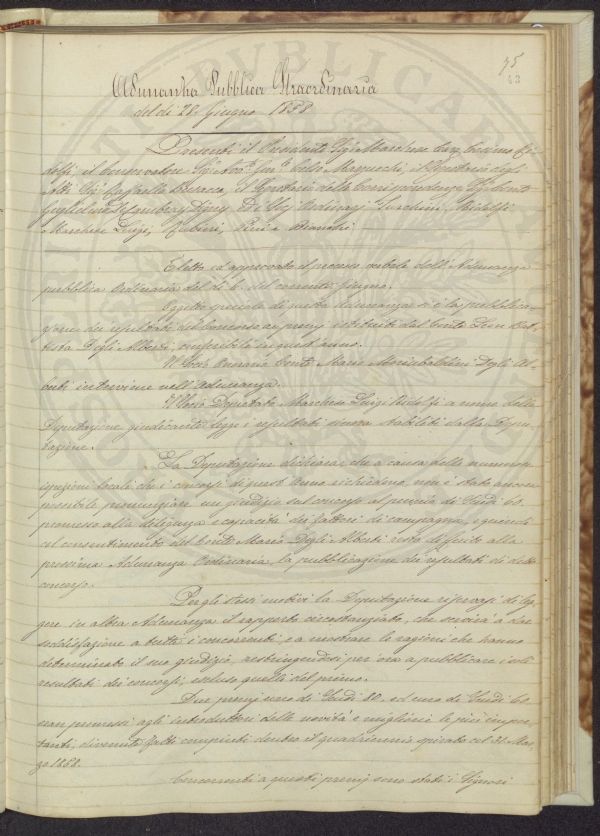 75
43
Adunanza Pubblica Straordinaria
del dì 28 Giugno 1858
Presenti il Presidente Sig. Marchese Cav. Cosimo Ri-
dolfi; il Conservatore Sig. Avv. Celso Marzucchi, il Segretario degli
Atti Raffaello Busacca, il Segretario delle Corrispondenze Sig. Conte
Guglielmo Digny Ordinarj Ridolfi
Marchese Luigi, Rubieri, e Bianchi
È letto ed approvato il processo verbale dell'Adunanza
pubblica Ordinaria del dì 6 del corrente Giugno.
Oggetto speciale di questa Adunanza si è la pubblica-
zione dei resultati del Concorso ai premj istituiti dal Conte Leon Bat-
tista Degli Alberti, conferibili in quest'anno.
Il Socio Onorario Conte Mario Mori Ubaldini Degli Al-
berti interviene nell'Adunanza.
Il Socio Deputato Marchese Luigi Ridolfi a nome della
Deputazione giudicante legge i resultati stabiliti dalla Depu-
tazione.
La Deputazione dichiara, che a causa delle numerose
ispezioni locali che i concorsi di quest'anno richiedono, non è stato ancora
possibile pronunziare un giudizio sul concorso al premio di Scudi 60.
promesso alla diligenza e capacità dei fattori di campagna, e quindi
col consentimento del Conte Mario Degli Alberti resta differita alla
prossima Adunanza Ordinaria la pubblicazione dei resultati di detto
concorso.
Per gli stessi motivi la Deputazione riservasi di leg-
gere in altra Adunanza il rapporto circostanziato, che servirà a dar
soddisfazione a tutti i concorrenti, e a mostrare le ragioni che hanno
determinato il suo giudizio, restringendosi per ora a pubblicare i soli
resultati dei concorsi, escluso quelli del primo.
Due premj uno di Scudi 80. ed uno di Scudi 60
eran promessi agli introduttori delle novità e migliorie le più impor-
tanti, divenute fatti compiuti dentro il quadriennio spirato col 31 Mar-
zo 1858.
Concorrenti a questi premj sono stati i Signori